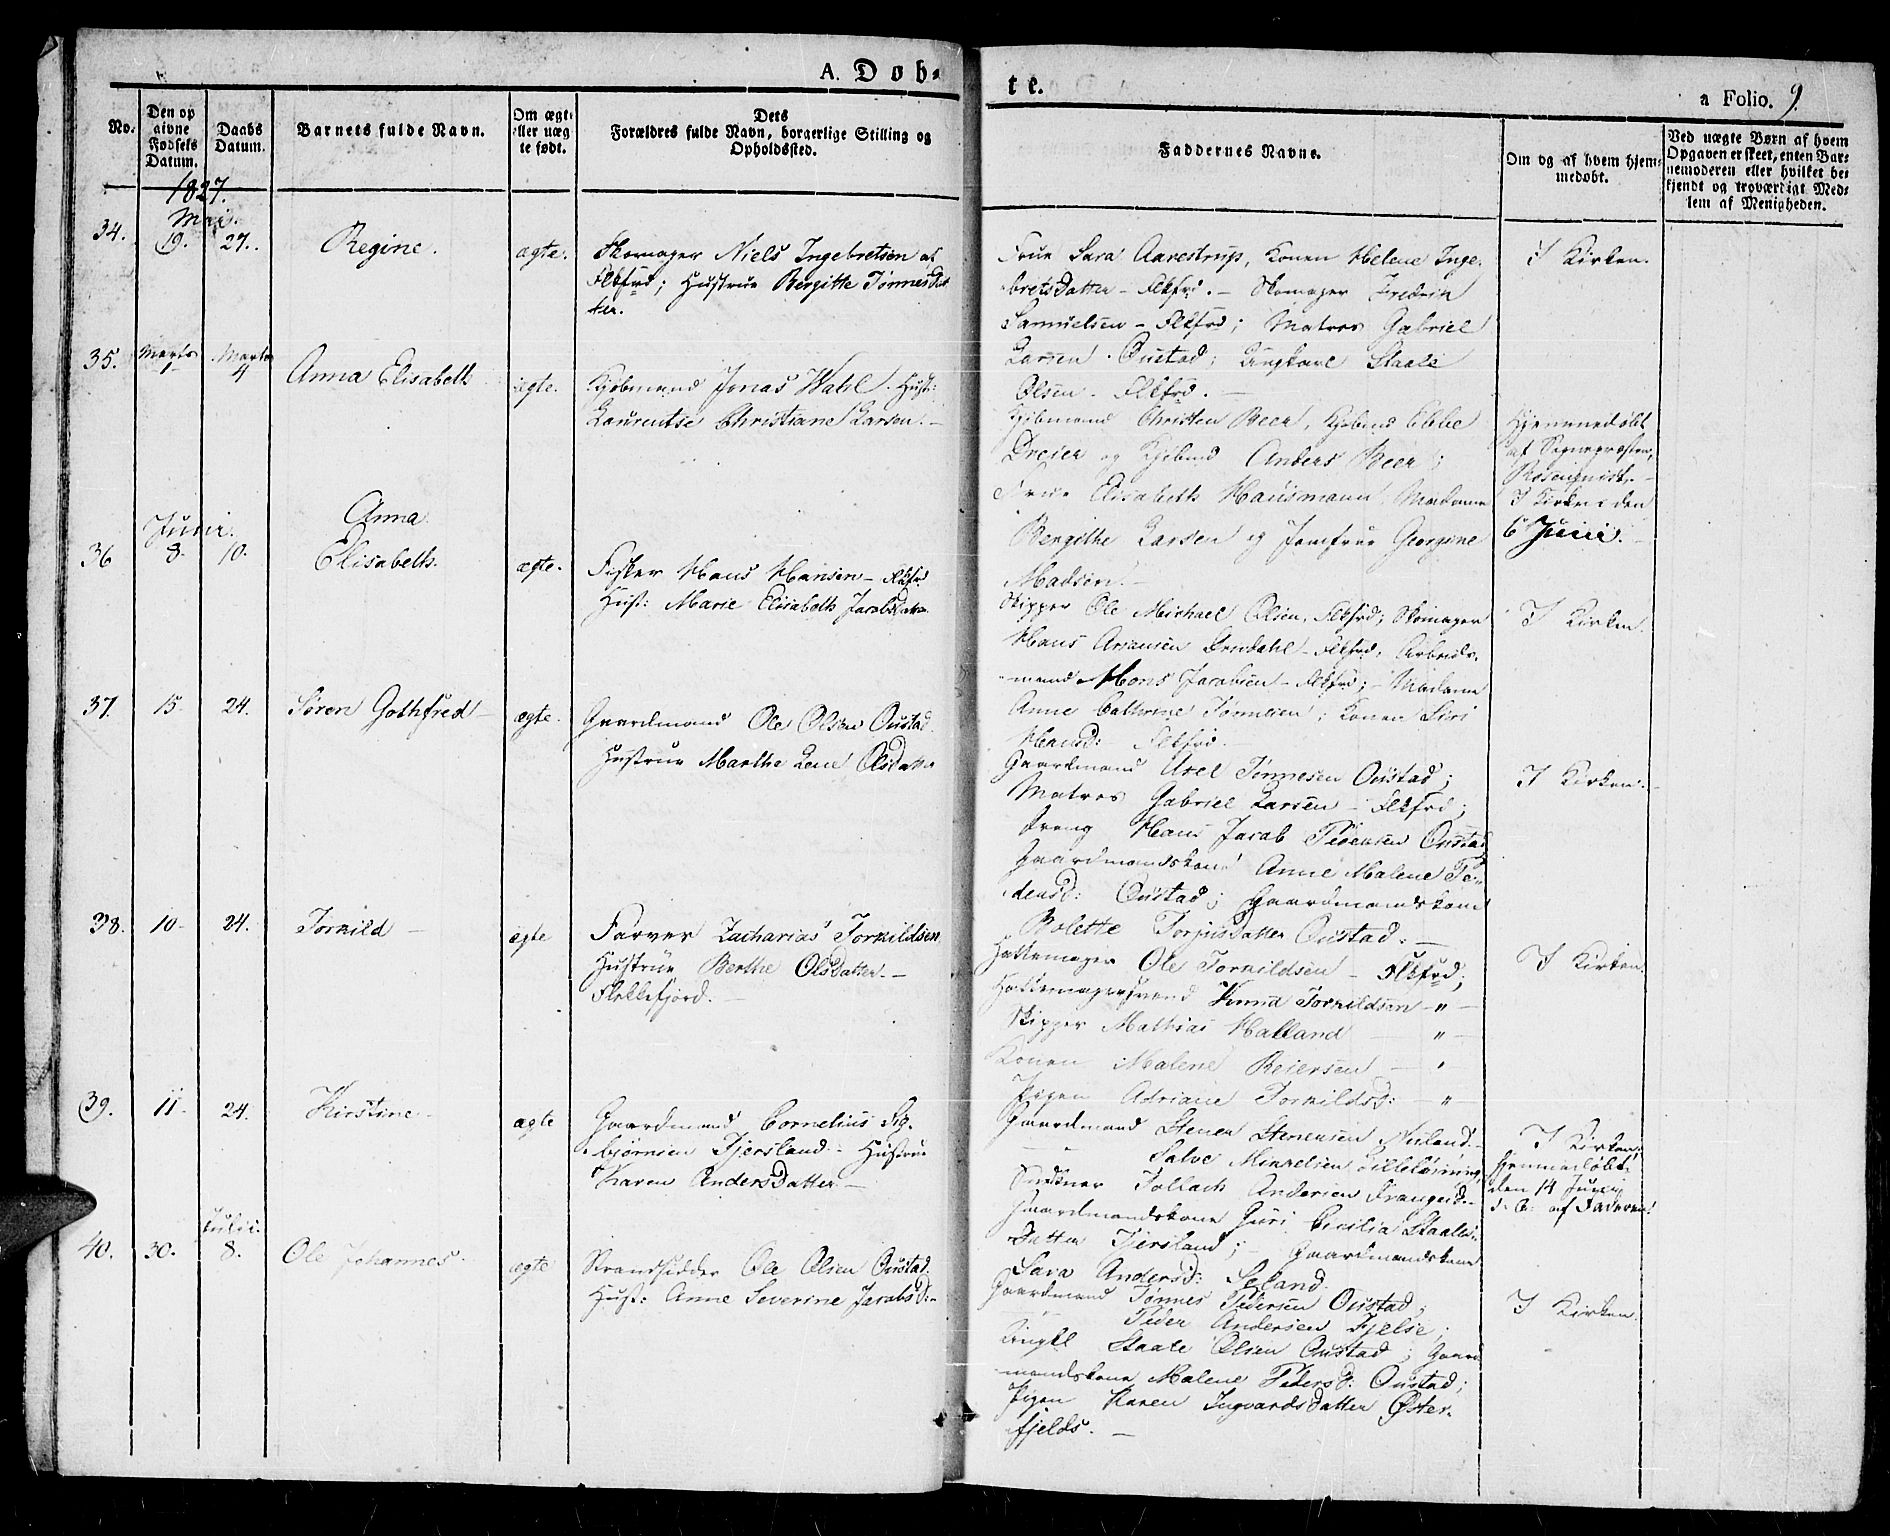 A. Døb-
te.
a Folio. 9.
No.
Den op
givne
Fødsels
Datum.
Daabs
Datum.
Barnets fulde Navn.
Om ægte
eller uæg
te født.
Dets
Forældres fulde Navn, borgerlige Stilling og
Opholdssted.
Faddernes Navne.
Om og af hvem hjem-
medøbt.
Ved uægte Børn af hvem
Opgaven er skeet, enten Bar-
nemoderen eller hvilket be-
kjendt og troværdigt Med-
lem af Menigheden.
1827.
Maj.
34. 19. 27. Regine. ægte. Skomager Niels Ingebretsen af
Flkfrd; Hustrue Bergitte Tønnesdat
ter.
Frue Sara Aarestrup, Konen Helene Inge-
bretsdatter - Flkfrd. - Skomager Fredrik
Samuelsen - Flkfrd; Matros Gabriel
Larsen Oustad; Ungkarl Staale
Olsen. Flkfrd.
I Kirken.
35. Marts 1 Marts 4 Anna Elisabeth ægte. Kjøbmand Jonas Wahl. Hust:
Laurentse Christiane Larsen. -
Kjøbmand Christen Beer, Kjøbmd Ebbe
Dreier og Kjøbmd Anders Beer;
Frue Elisabeth Hausmann, Madame
Bergithe Larsen og Jomfrue Georgine
Madsen. -
Hjemmedøbt
af Sognepræsten,
Rosenqvist. -
I Kirken den
6 Junii.
Junii.
36 8. 10. Anna
Elisabeth. ægte. Fisker Hans Hansen - Flkfrd
Hust: Marie Elisabeth Jacobsdatter
Skipper Ole Michael Olsen, Flkfrd; Skomager
Hans Drydahl - Flkfrd, Arbeids-
mand Mons Jacobsen - Flkfrd; - Madame
Anne Cathrine Tønnesen; Konen Siri
Hansd: Flkfrd. -
I Kirken.
37. 15. 24. Søren Gothfred - ægte. Gaardmand Ole Olsen Oustad
Hustrue Marthe Lene Olsdatter
Gaardmand Axel Tønnesen Oustad;
Matros Gabriel Larsen - Flkfrd;
Dreng Hans Jacob Pedersen Oustad
Gaardmandskone Anne Malene Pe-
dersd: Oustad; Gaardmandskone
Bolette Torjusdatter Oustad. -
I Kirken.
38. 10. 24. Torkild - ægte Farver Zacharias Torkildsen
Hustrue Berthe Olsdatter. -
Flekkefjord. -
Hattemager Ole Torkildsen - Flkfrd;
Hattemagersvend Knud Torkildsen - " -
Skipper Mathias Halland - " -
Konen Malene Reiersen - "
Pigen Adriane Torkildsd: - " -
I Kirken.
39. 11. 24. Kirstine - ægte Gaardmand Cornelius Sig-
bjørnsen Fjersland. - Hustrue
Karen Andersdatter -
Gaardmand Stener Stenersen Niuland. -
Salve Mikkelsen
Tollach Andersen
Gaardmandskone Guri Cicilia Staales-
datter Fjersland; - Gaardmandskone
Sara Andersd: Seland.
I Kirken.
Hjemmedøbt
den 14 Junii
d. A: af Faderen.
Julii.
40. 30. 8. Ole Johannes. ægte Strandsidder Ole Olsen Oustad.
Hust: Anne Severine Jacobsd: -
Gaardmand Tønnes Pedersen Oustad;
Peder Andersen Fjelse;
Ungkl Staale Olsen Oustad; Gaard
mandskone Malene Pedersd: Oustad;
Pigen Karen Ingvardsdatter Øster-
fjelds. -
I Kirken.